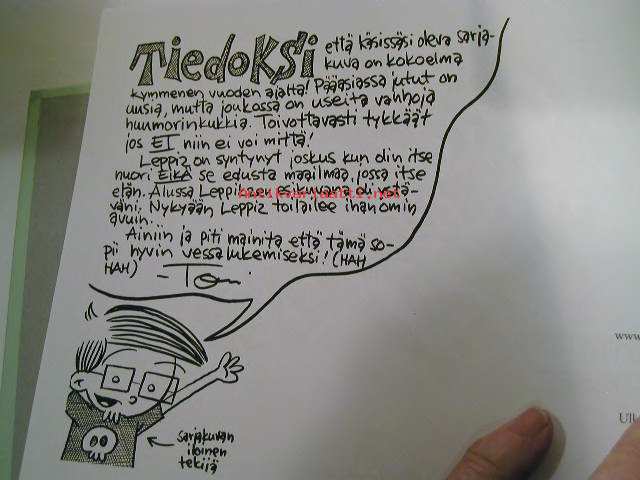 Tiedoksi että käsissäsi oleva sarja-
kuva on kokoelma
kymmenen vuoden ajalta! Pääasiassa jutut on
uusia, mutta joukossa on useita vanhoja
huumorinkukkia. Toivottavasti tykkäät
jos EI niin ei voi mittä!
Leppiz on syntynyt joskus kun olin itse
nuori EIKÄ se edusta maailmaa, jossa itse
elän. Alussa Leppizen esikuvana oli ystä-
väni. Nykyään Leppiz toilailee ihan omin
avuin.
Ainiin ja piti mainita että tämä so-
pii hyvin vessalukemiseksi! (HAH
HAH)
sarjakuvan
iloinen
tekijä
www